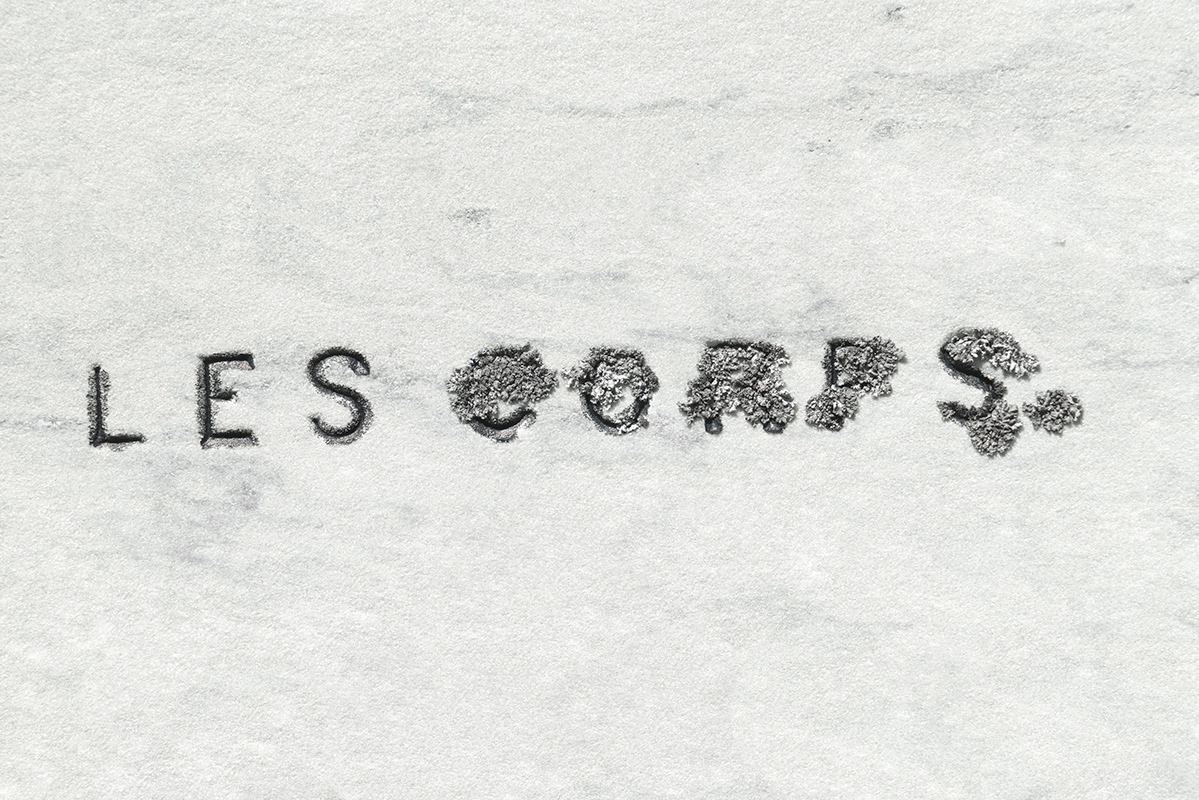 LES CORPS.